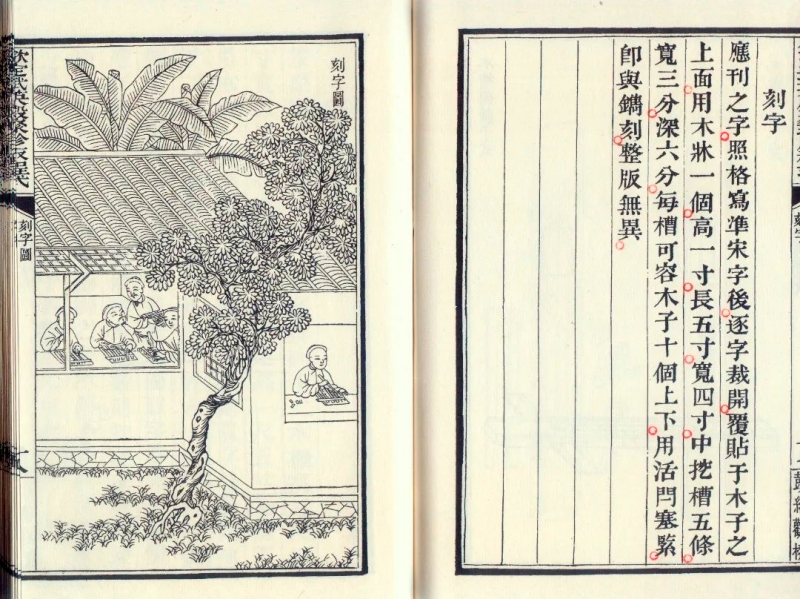 刻字
應刊之字照格寫準宋字後逐字裁開覆貼于木子之
上面用木牀一個高一寸長五寸寬四寸中挖槽五條
寬三分深六分每槽可容木子十個上下用活閂塞緊
卽與鐫刻整版無異
刻字圖
欽定武英殿聚珍版程式
刻字圖